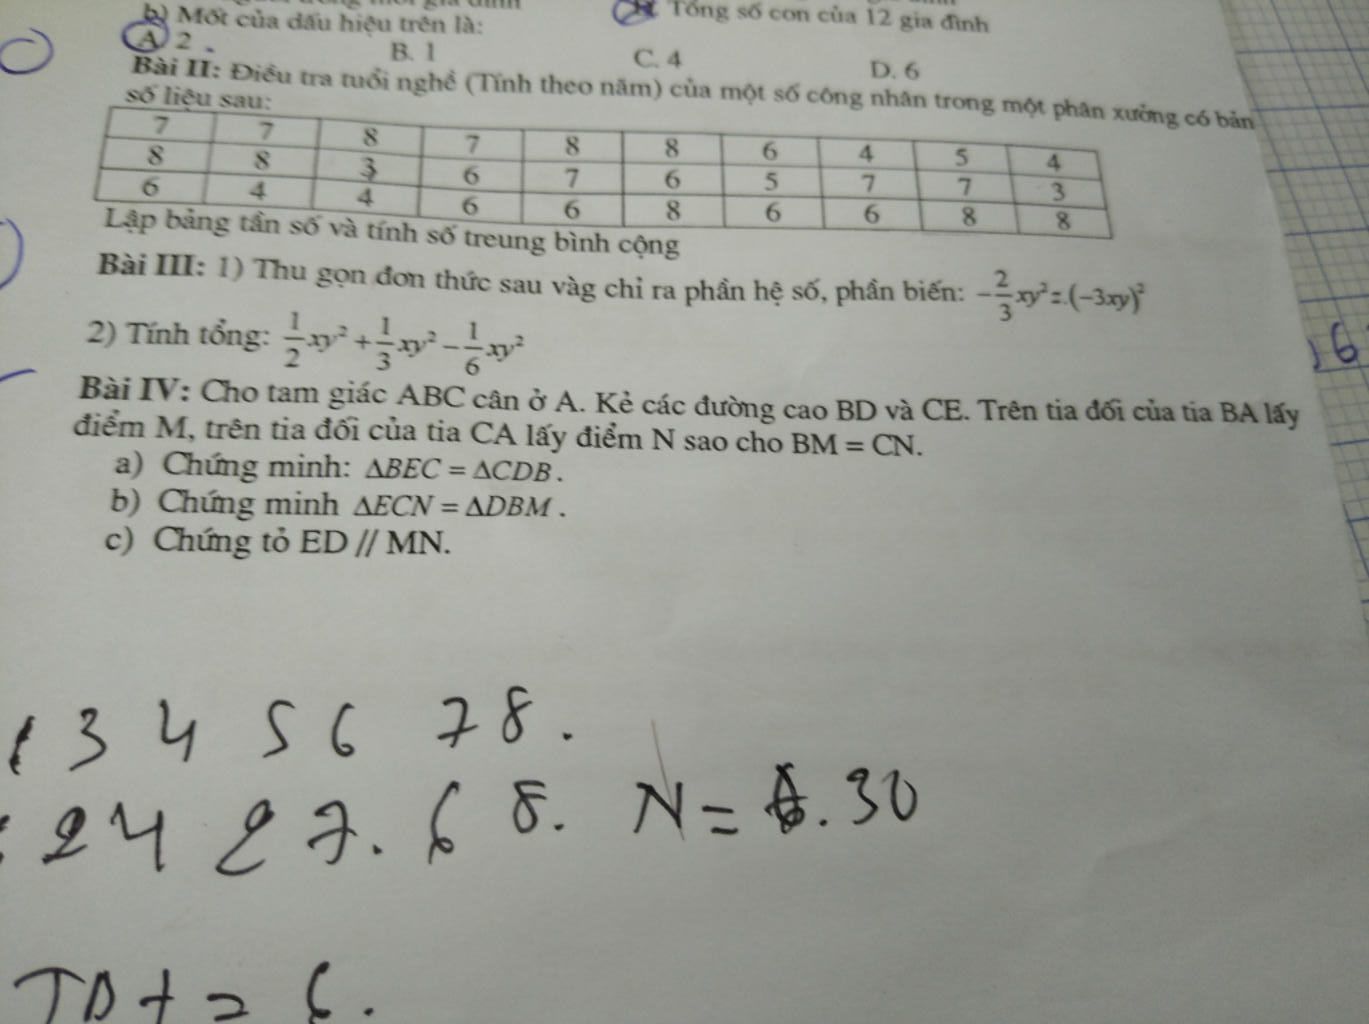 b) Mốt của dấu hiệu trên là:
Tổng số con của 12 gia đình
A 2 B. 1 C. 4 D. 6
Bài II: Điều tra tuổi nghề (Tính theo năm) của một số công nhân trong một phân xưởng có bản
số liệu sau:
7 7 8 7 8 8 6 4 5 4
8 8 3 6 7 6 5 7 7 3
6 4 4 6 6 8 6 6 8 8
Lập bảng tần số và tính số treung bình cộng
Bài III: 1) Thu gọn đơn thức sau vàg chỉ ra phần hệ số, phần biến: -2/3xy²=.(-3xy)²
2) Tính tổng: 1/2xy² + 1/3xy² - 1/6xy²
Bài IV: Cho tam giác ABC cân ở A. Kẻ các đường cao BD và CE. Trên tia đối của tia BA lấy
điểm M, trên tia đối của tia CA lấy điểm N sao cho BM = CN.
a) Chứng minh: ΔBEC = ΔCDB.
b) Chứng minh ΔECN = ΔDBM.
c) Chứng tỏ ED // MN.
3 4 5 6 7 8.
2 4 2 7. 6 8. N = 30